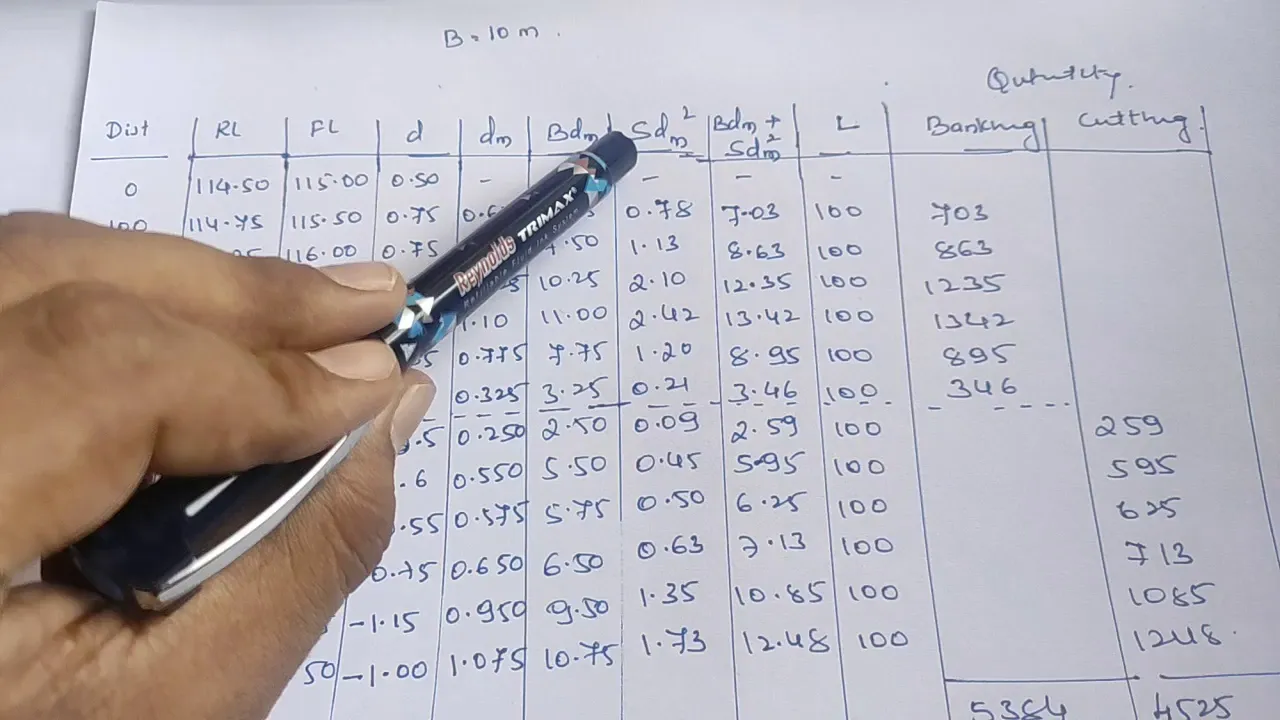 B = 10 m.
Qutntity.
Dist RL FL d dm Bdm Sdm² Bdm + Sdm² L Banking Cutting
0 114.50 115.00 0.50 - - - -
100 114.75 115.50 0.75 0.78 7.03 100 703
116.00 0.75 7.50 1.13 8.63 100 863
10.25 2.10 12.35 100 1235
1.10 11.00 2.42 13.42 100 1342
0.775 7.75 1.20 8.95 100 895
0.325 3.25 0.21 3.46 100 346
0.250 2.50 0.09 2.59 100 259
0.550 5.50 0.45 5.95 100 595
0.575 5.75 0.50 6.25 100 625
0.75 0.650 6.50 0.63 7.13 100 713
-1.15 0.950 9.50 1.35 10.85 100 1085
50 -1.00 1.075 10.75 1.73 12.48 100 1248.
5384 4525
Reynolds TRIMAX